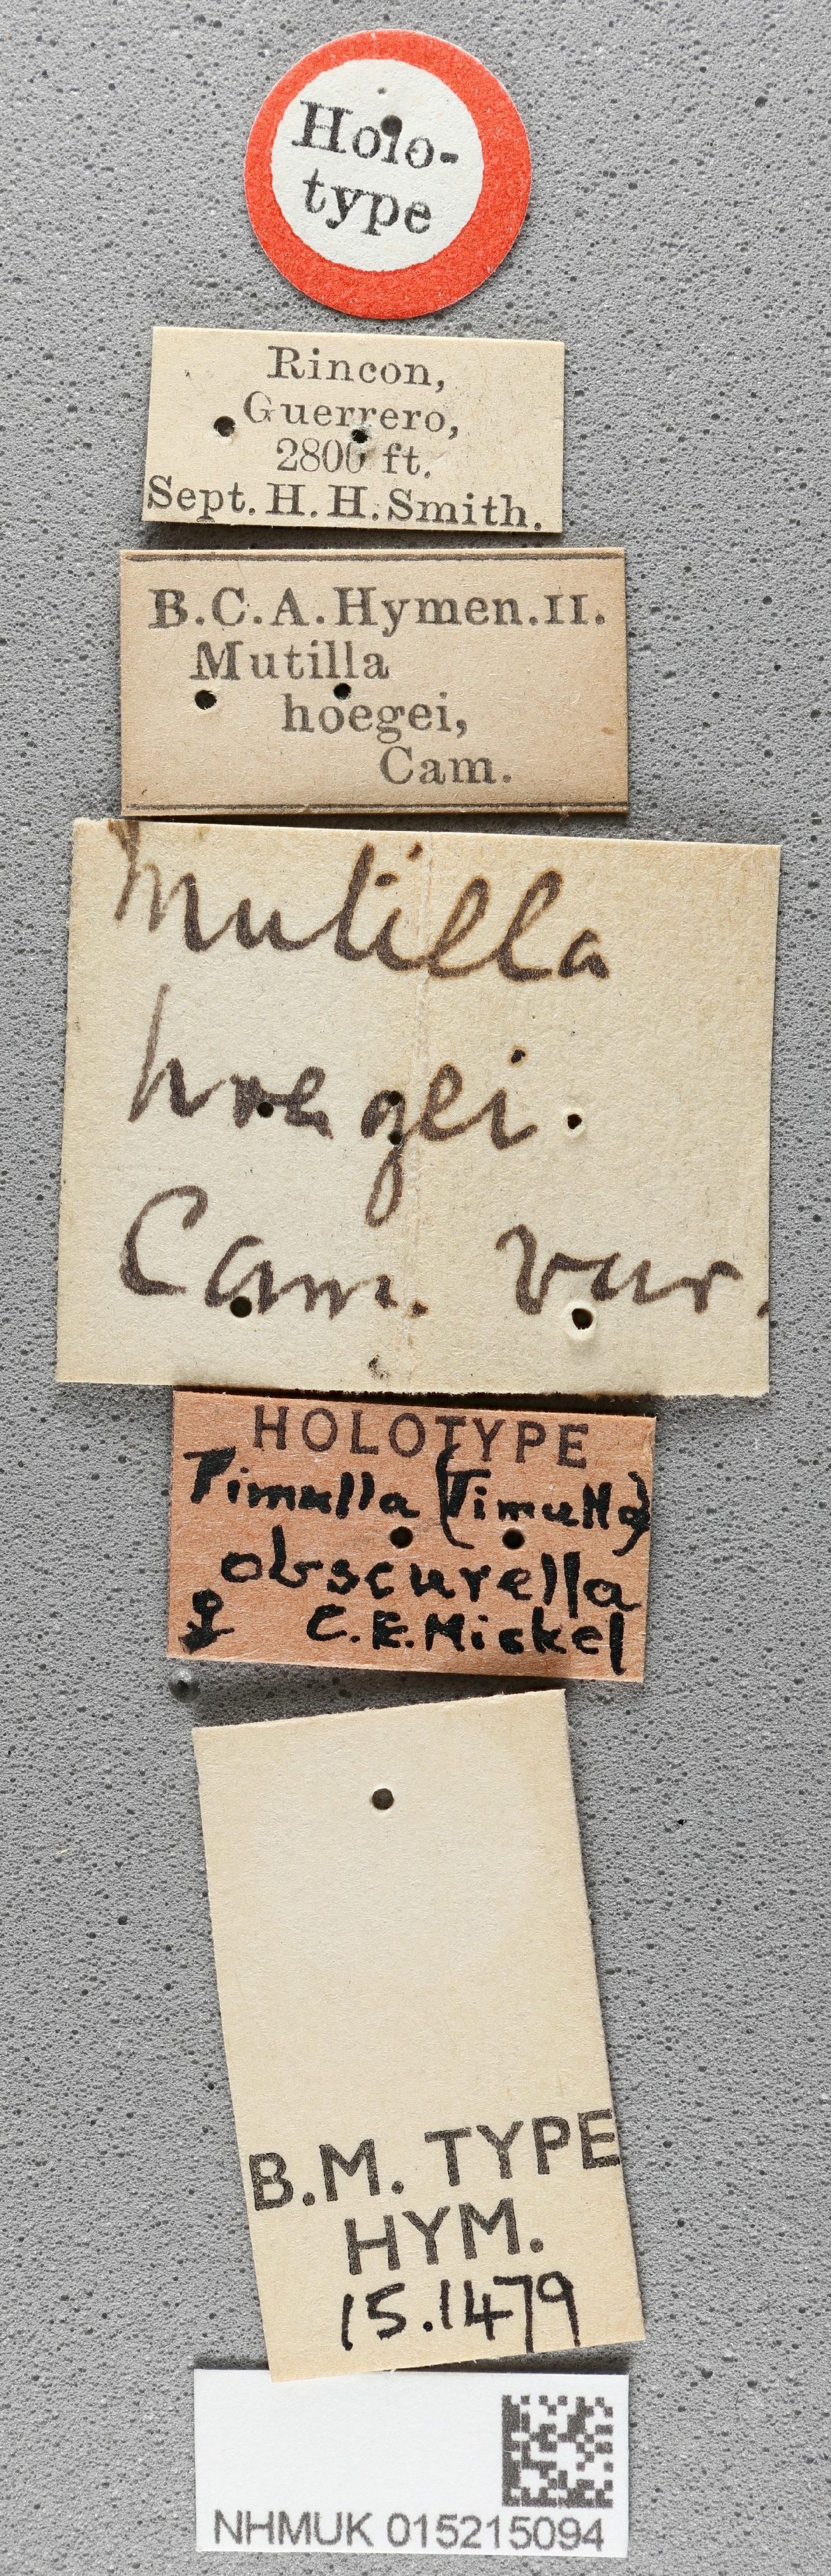 Holo-
type
Rincon,
Guerrero,
2800 ft.
Sept. H. H. Smith.
B.C.A. Hymen. II.
Mutilla
hoegei,
Cam.
Mutilla
hoegei.
Cam. var.
HOLOTYPE
Timulla (Timulla)
obscurella
♀ C.E. Mickel
B.M. TYPE
HYM.
15.1479
NHMUK 015215094